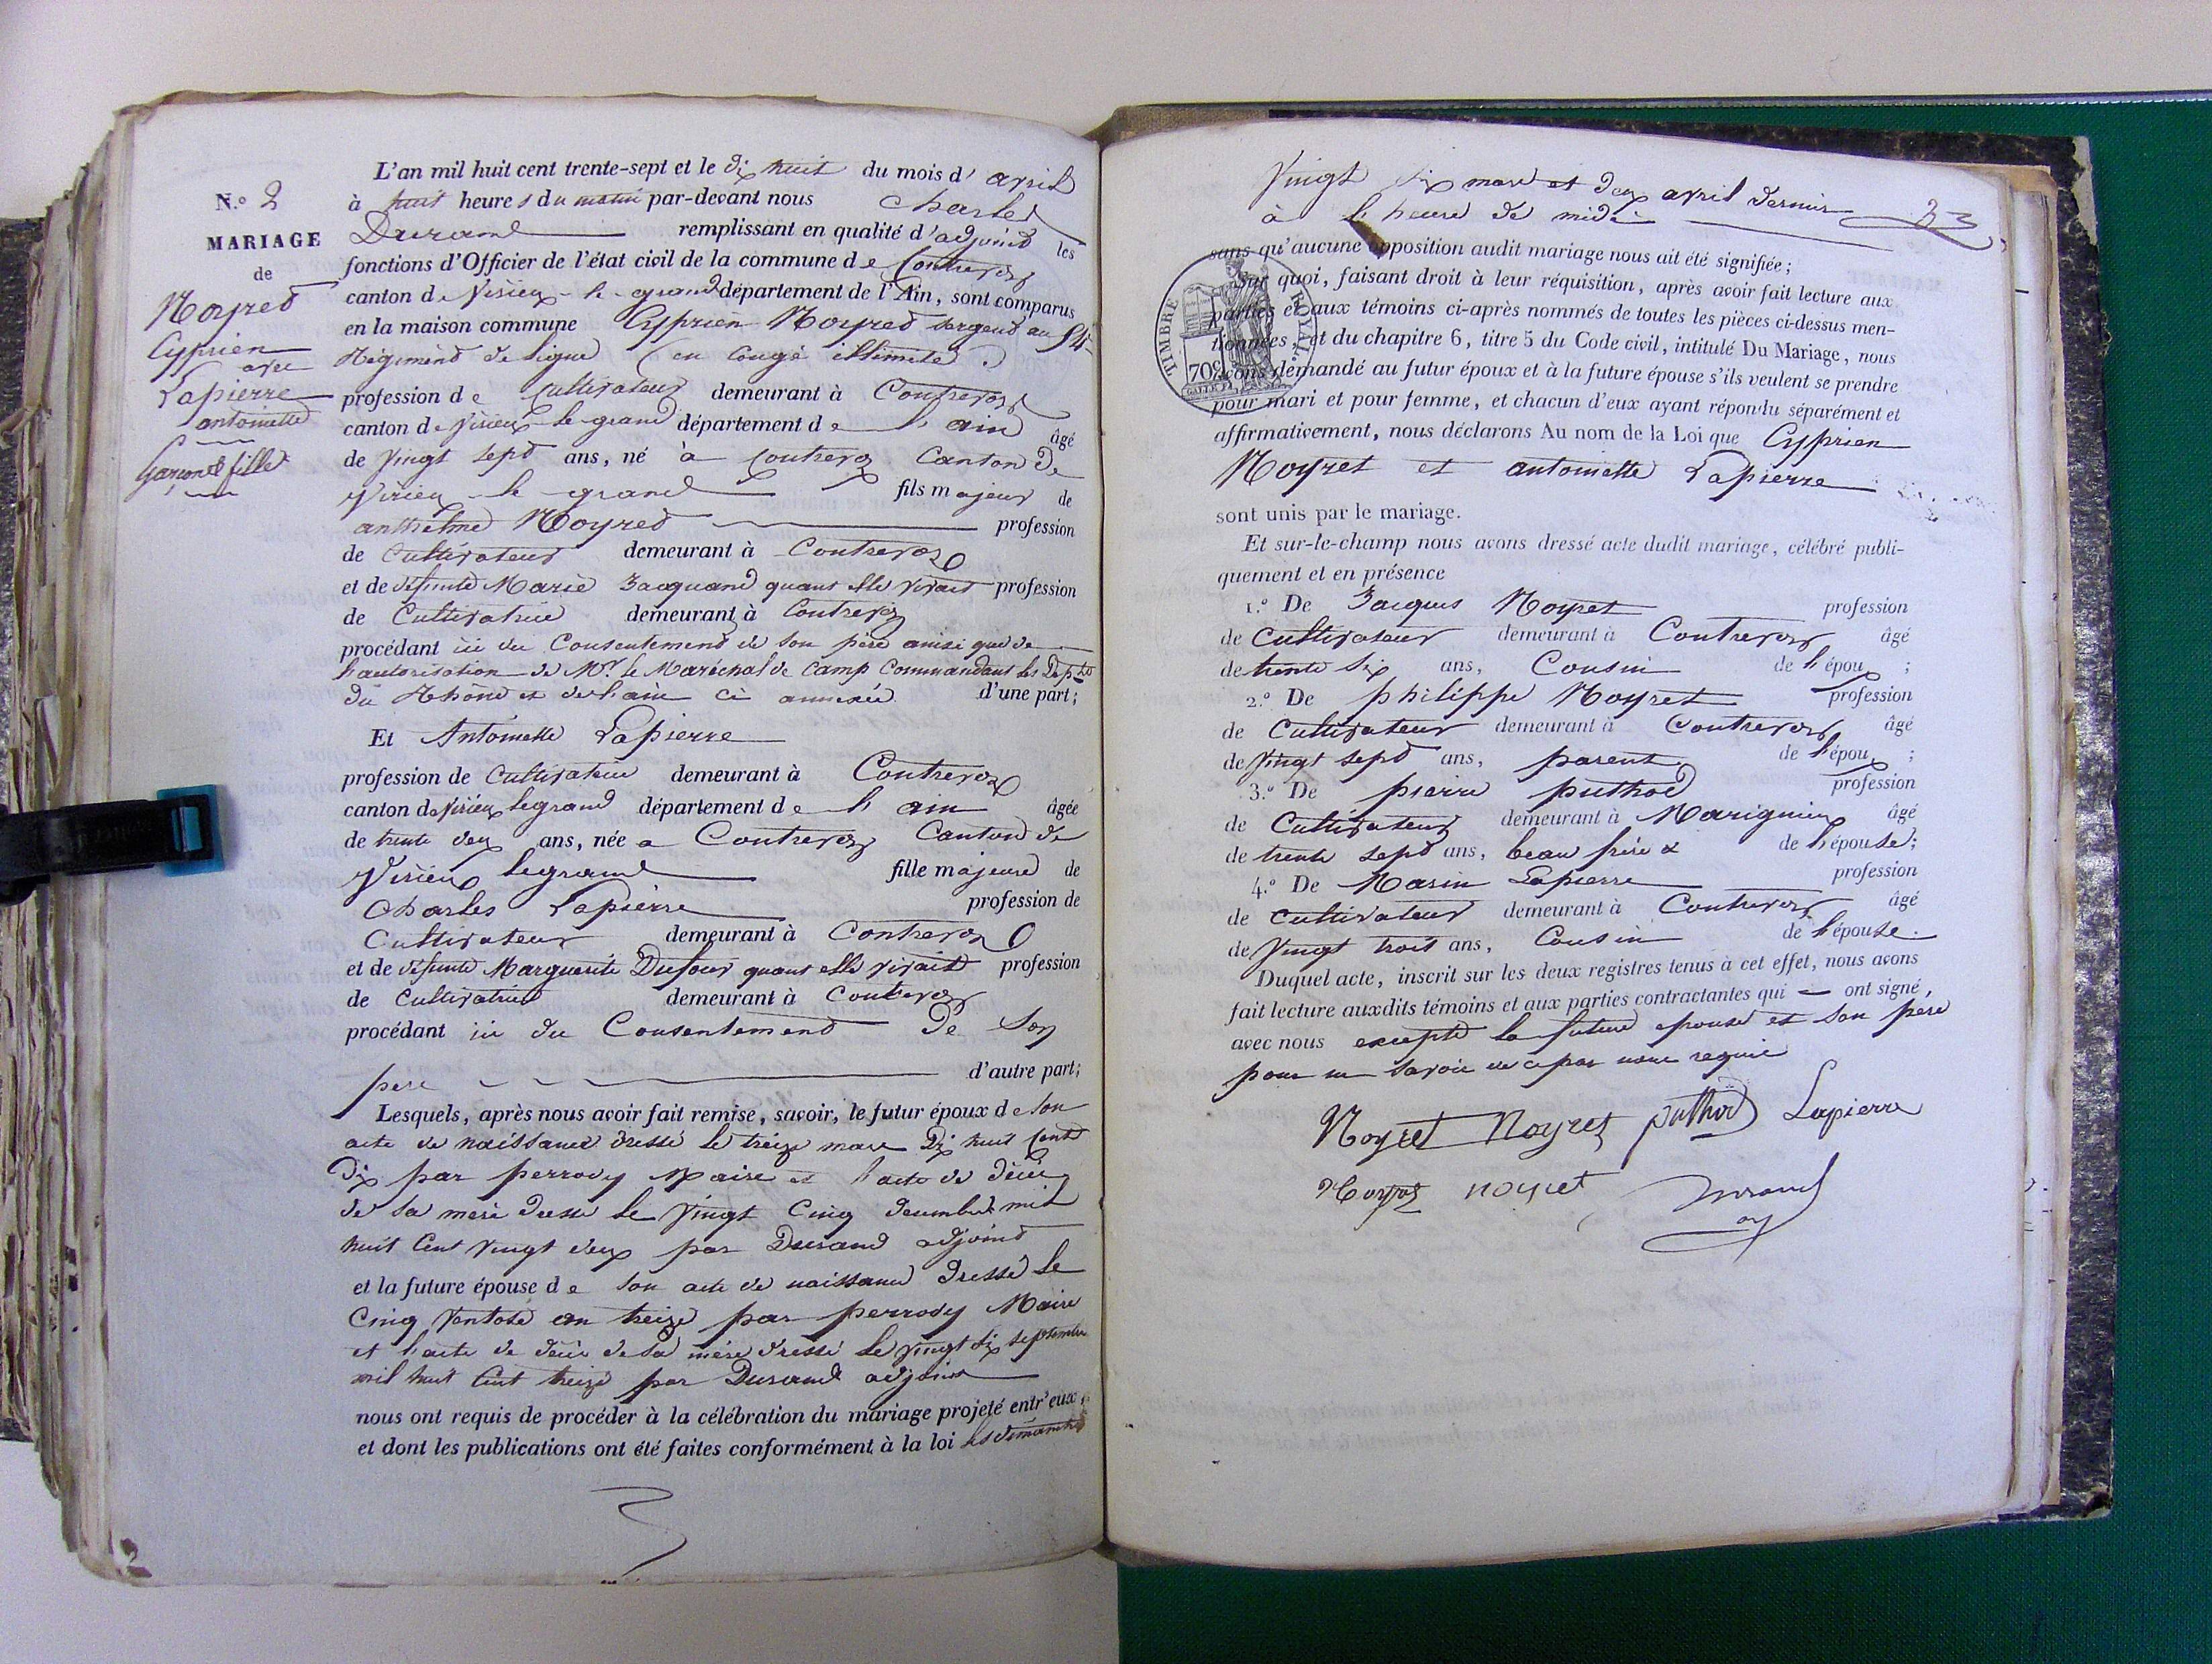 N.o 2
MARIAGE
de
Noyret
Cyprien
avec
Lapierre
antoinette
Garçon et fille
L'an mil huit cent trente-sept et le dix huit du mois d' avril
à huit heures du matin par-devant nous Charles
Durand remplissant en qualité d'adjoint les
fonctions d'Officier de l'état civil de la commune de Contrevoz
canton de Virieux-le-grand département de l'Ain, sont comparus
en la maison commune Cyprien Noyret sergent au
Régiment de ligne (en Congé illimité.)
profession de Cultivateur demeurant à Contrevoz
canton de Virieux-le-grand département de l'ain âgé
de vingt sept ans, né à Contrevoz Canton de
Virieu-le-grand fils majeur de
anthelme Noyret profession
de Cultivateur demeurant à Contrevoz
et de défunte Marie Jacquand quant elle vivait profession
de Cultivatrice demeurant à Contrevoz
procédant ici du Consentement de son père ainsi que de
l'autorisation de Mr. le Maréchal de Camp Commandant les Dépts
du Rhône et de l'ain ci annexée d'une part;
Et Antoinette Lapierre
profession de Cultivatrice demeurant à Contrevoz
canton de Virieu legrand département de l'ain âgée
de trente deux ans, née a Contrevoz Canton de
Virieux legrand fille majeure de
Charles Lapierre profession de
Cultivateur demeurant à Contrevoz
et de défunte Marguerite Dufour quant elle vivait profession
de Cultivatrice demeurant à Contrevoz
procédant ici du Consentement de son
père d'autre part;
Lesquels, après nous avoir fait remise, savoir, le futur époux de son
acte de naissance dressé le treize mars Dix huit Cent
Dix par perrody Maire et l'acte de décès
de sa mère dressé le vingt Cinq décembre mil
huit Cent vingt deux par Durand adjoint
et la future épouse de son acte de naissance dressé le
Cinq Ventose an treize par perrody Maire
et l'acte de décès de sa mère dressé le vingt six septembre
mil huit Cent treize par Durand adjoint
nous ont requis de procéder à la célébration du mariage projeté entr'eux,
et dont les publications ont été faites conformément à la loi les dimanches
Vingt six mars et deux avril dernier
à l'heure de midi
sans qu'aucune opposition audit mariage nous ait été signifiée;
Sur quoi, faisant droit à leur réquisition, après avoir fait lecture aux
parties et aux témoins ci-après nommés de toutes les pièces ci-dessus men-
tionnées, et du chapitre 6, titre 5 du Code civil, intitulé Du Mariage, nous
avons demandé au futur époux et à la future épouse s'ils veulent se prendre
pour mari et pour femme, et chacun d'eux ayant répondu séparément et
affirmativement, nous déclarons Au nom de la Loi que Cyprien
Noyret et antoinette Lapierre
TIMBRE ROYAL.
70c
sont unis par le mariage.
Et sur-le-champ nous avons dressé acte dudit mariage, célébré publi-
quement et en présence
1.o De Jacques Noyret profession
de Cultivateur demeurant à Contrevoz âgé
de trente six ans, Cousin de l'époux;
2.o De philippe Noyret profession
de Cultivateur demeurant à Contrevoz âgé
de vingt sept ans, parent de l'époux;
3.o De pierre puthod profession
de Cultivateur demeurant à Marignieu âgé
de trente sept ans, beau frère de l'épouse;
4.o De Marin Lapierre profession
de Cultivateur demeurant à Contrevoz âgé
de vingt trois ans, Cousin de l'épouse.
Duquel acte, inscrit sur les deux registres tenus à cet effet, nous avons
fait lecture auxdits témoins et aux parties contractantes qui ont signé,
avec nous excepté la future épouse et son père
pour ne savoir de ce par nous requis
Noyret Noyret puthod Lapierre
Noyret noyret Durand